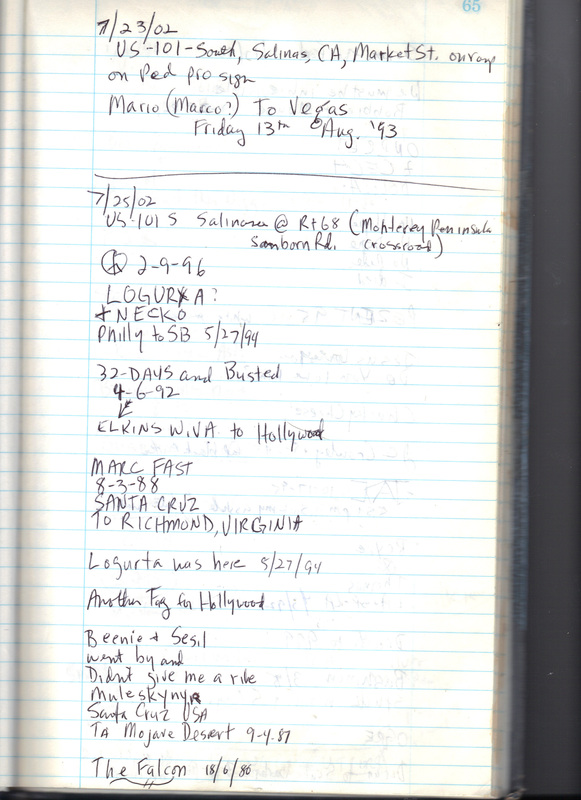 65
7/23/02
US-101-South, Salinas, CA, Market St. onramp
on Ped pro sign
Mario (Marco?) To Vegas
Friday 13th Aug. '93
7/25/02
US-101 S Salinas @ Rt 68 (Monterey Peninsula
Sanborn Rd. crossroad)
2-9-96
LOGURTA?
+ NECKO
Philly to SB 5/27/94
32-DAYS and Busted
4-6-92
ELKINS W.VA to Hollywood
MARC FAST
8-3-88
SANTA CRUZ
TO RICHMOND, VIRGINIA
Logurta was here 5/27/94
Another Fag for Hollywood
Beenie + Sesil
went by and
Didnt give me a ribe
Muleskynyr
Santa Cruz USA
TA Mojave Desert 9-4-87
The Falcon 18/6/86